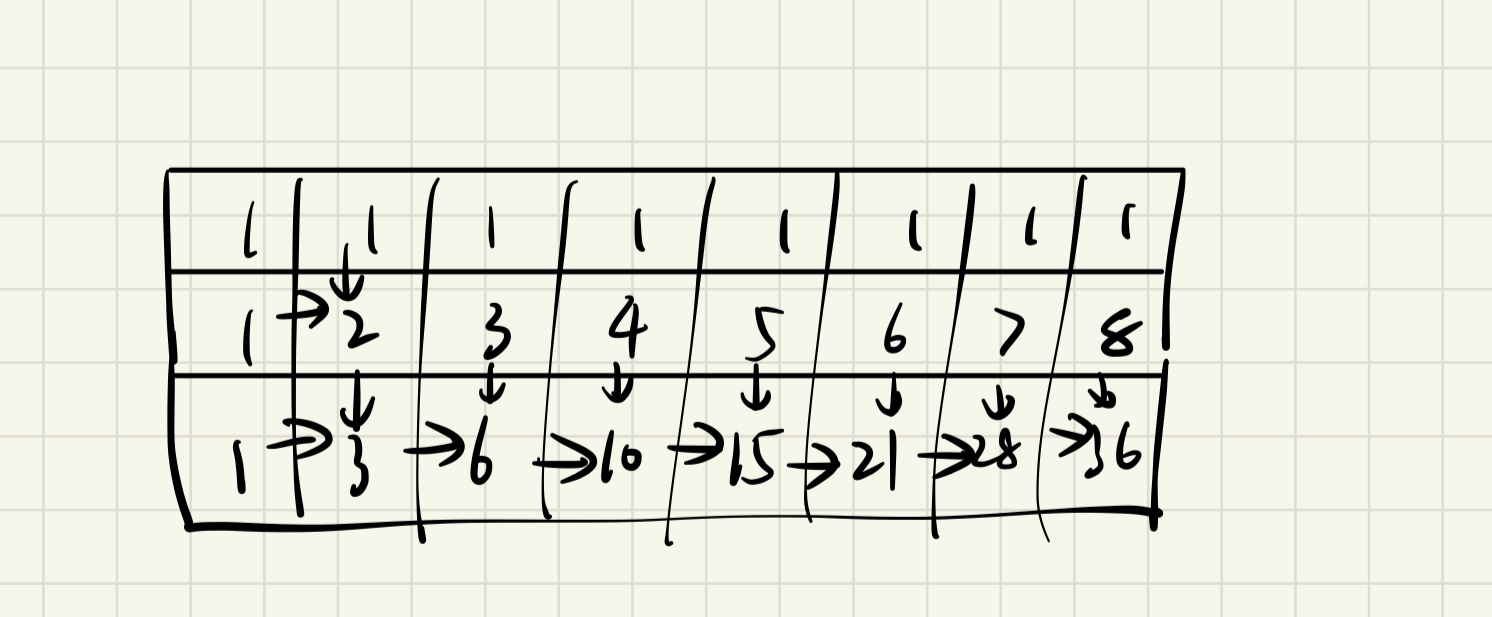 1 1 1 1 1 1 1 1
1 → 2 3 4 5 6 7 8
1 → 3 → 6 → 10 → 15 → 21 → 28 → 36